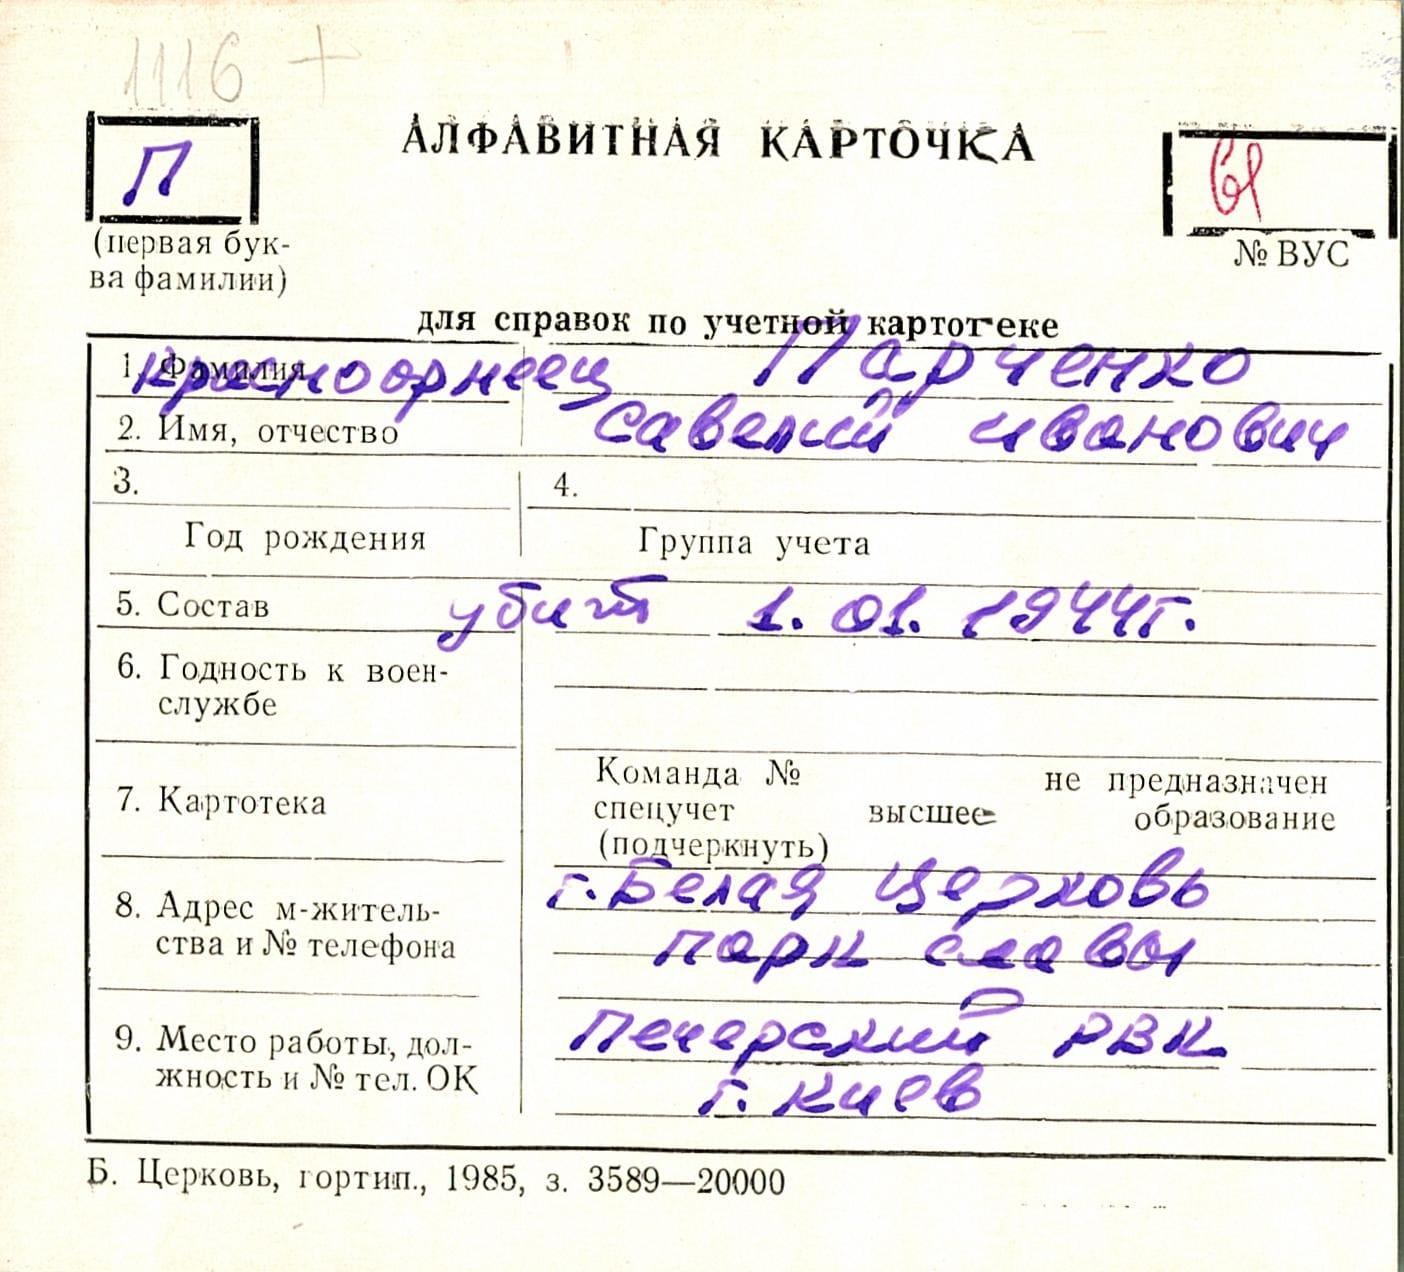 1116 +
П
АЛФАВИТНАЯ КАРТОЧКА
61
(первая бук-
ва фамилии)
№ ВУС
для справок по учетной картотеке
1. Фамилия
красноормеец Парченко
2. Имя, отчество Савелий Иванович
3. 4.
Год рождения Группа учета
5. Состав убит 1.01.1944г.
6. Годность к воен-
службе
7. Картотека
Команда № не предназначен
спецучет высшее образование
(подчеркнуть)
8. Адрес м-житель-
ства и № телефона
г. Белая Церковь
парк славы
9. Место работы, дол-
жность и № тел. ОК
Печерский РВК
г. Киев
Б. Церковь, гортип., 1985, з. 3589—20000